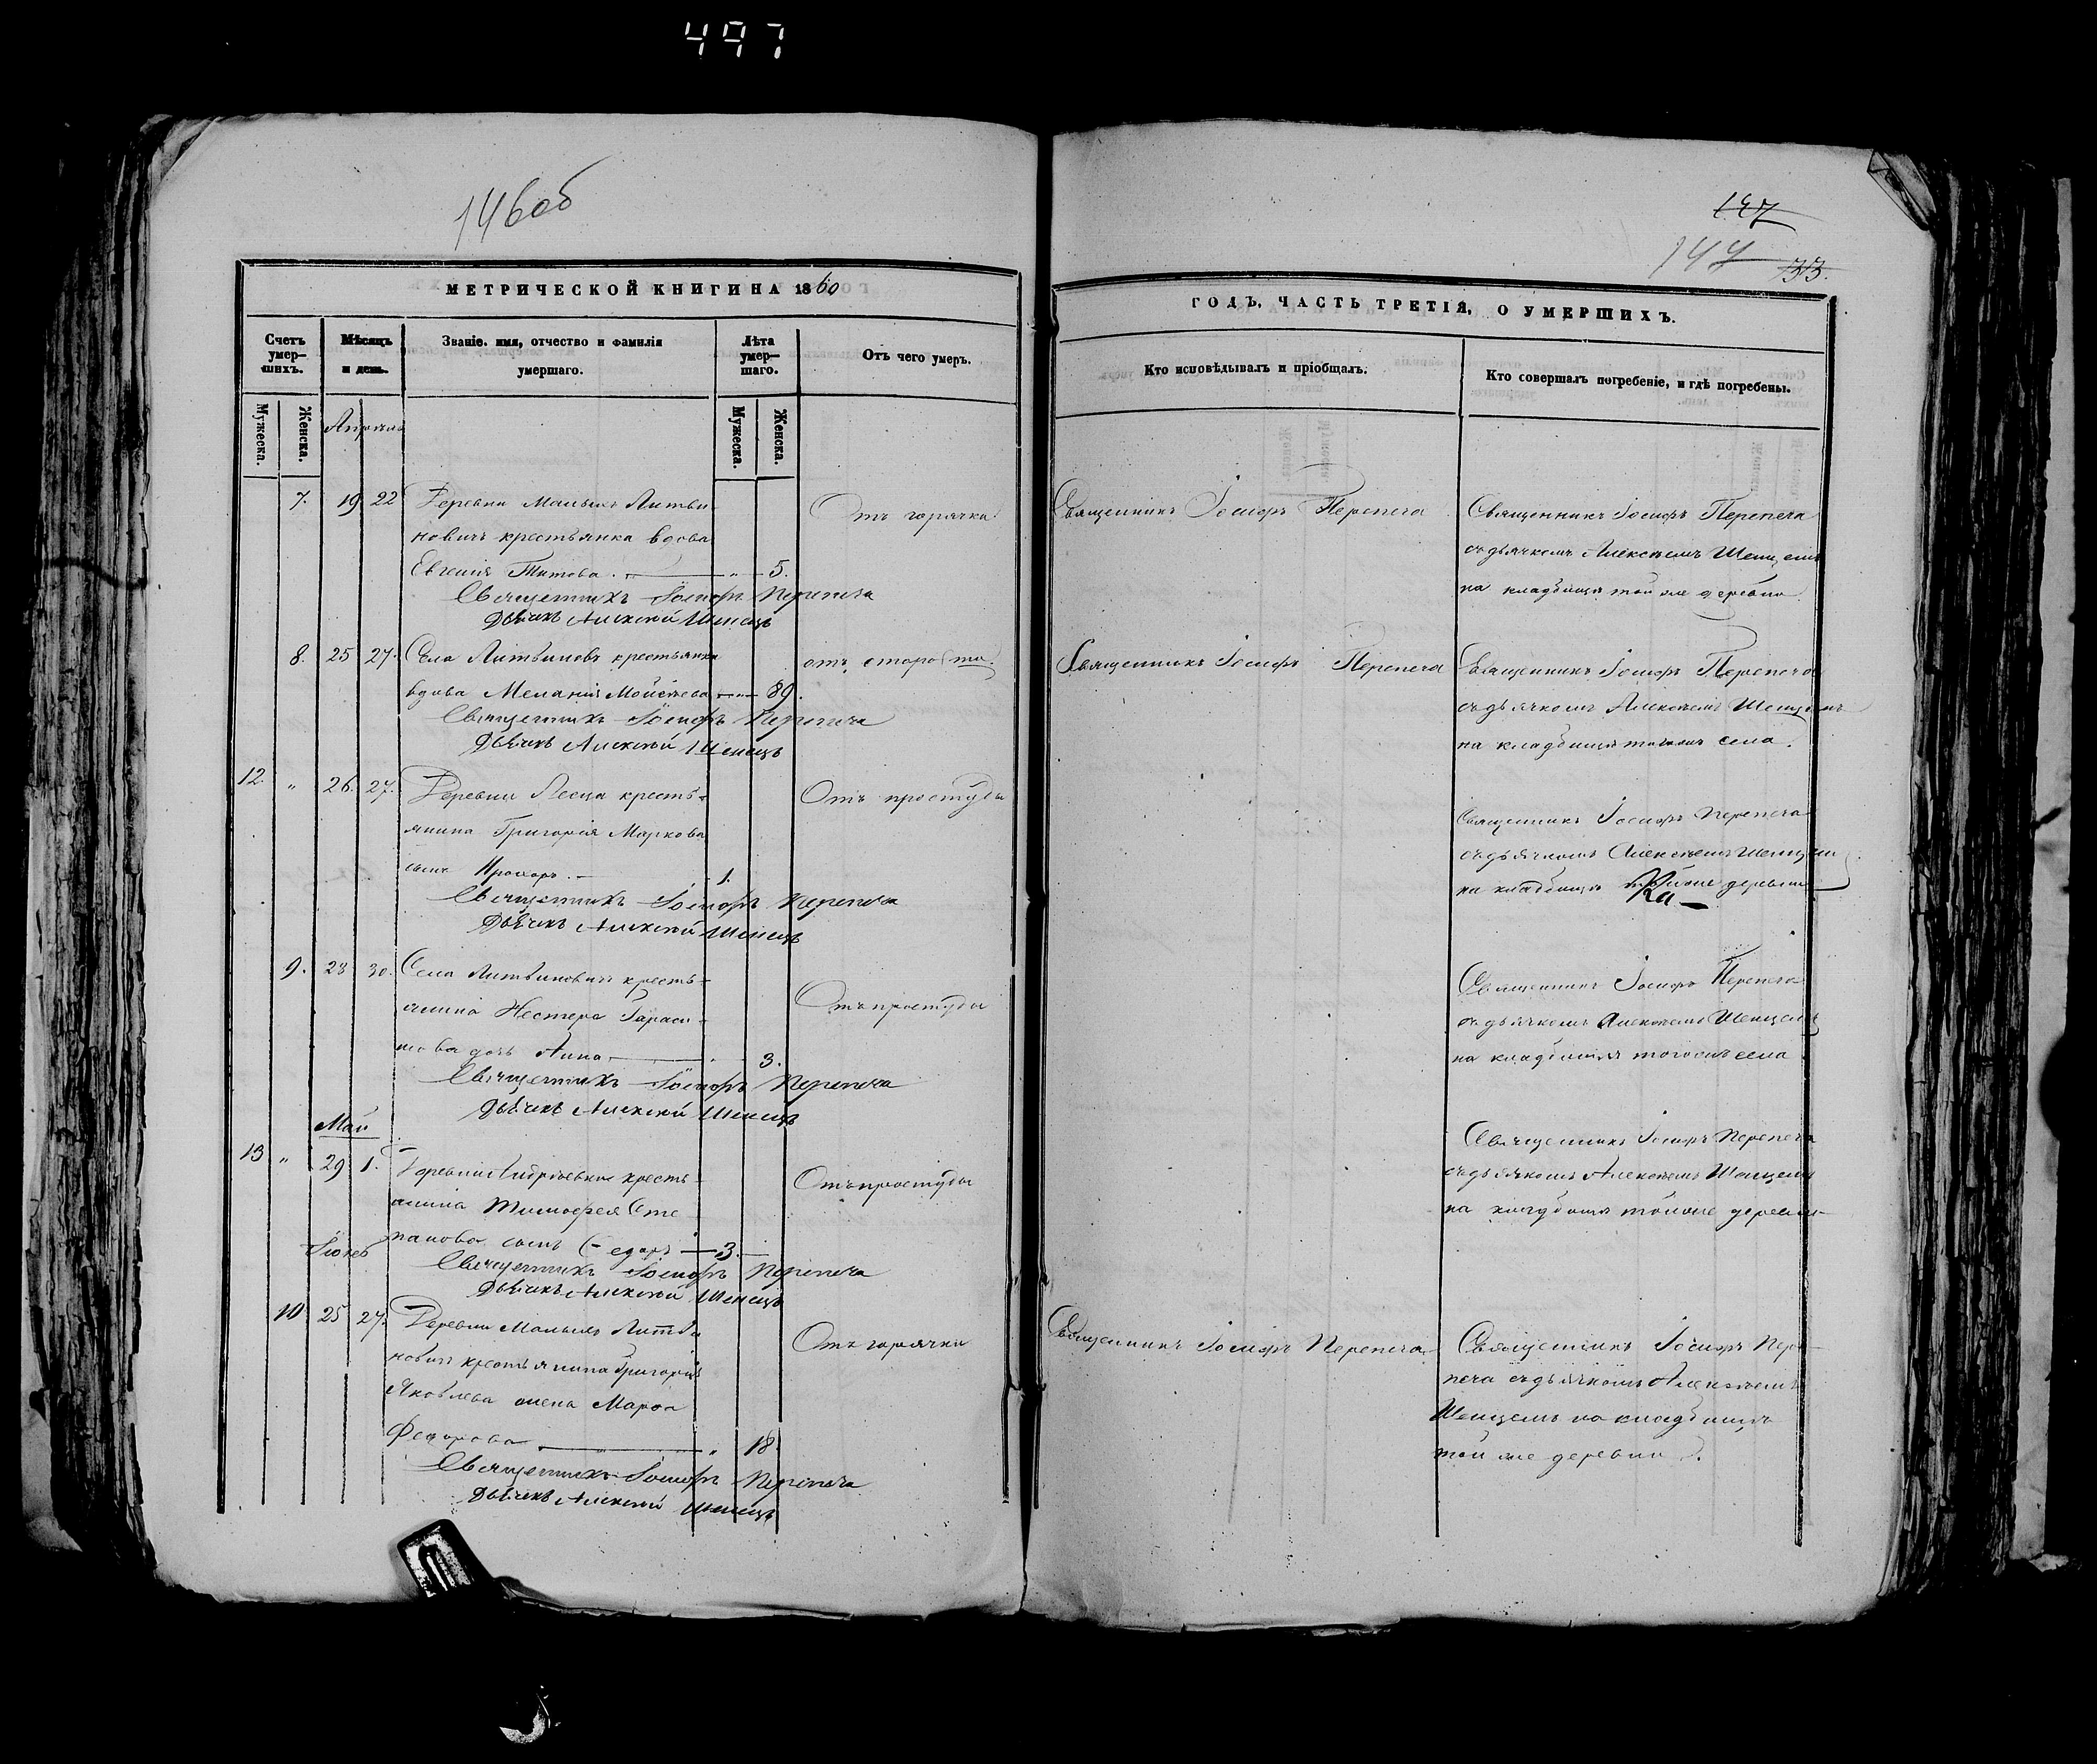 497
146об
147
147
133.
МЕТРИЧЕСКОЙ КНИГИ НА 1860
ГОДЪ, ЧАСТЬ ТРЕТІЯ, О УМЕРШИХЪ.
Счетъ умер-шихъ.
Мѣсяцъ и день.
Званіе. имя, отчество и фамилія умершаго.
Лѣта умер-шаго.
Отъ чего умеръ.
Кто исповѣдывалъ и пріобщалъ.
Кто совершалъ погребеніе, и гдѣ погребены.
Мужеска.
Женска.
Апрель
Мужеска.
Женска.
7. 19 22 Деревни Малыхъ Литви
новичъ крестьянка вдова
Евгенія Титова. " 5.
Отъ горячки
Священникъ Іосифъ Перепеча
Священникъ Іосифъ Перепеча
съ дьячкомъ Алексѣемъ Шенцемъ
на кладбищѣ той же деревни
Священникъ Іосифъ Перепеча
Дьячекъ Алексѣй Шенецъ
8. 25 27. Села Литвиновъ крестьянка
вдова Меланія Мойсѣева " 89.
отъ старости.
Священникъ Іосифъ Перепеча
Священникъ Іосифъ Перепеча
съ дьячкомъ Алексѣемъ Шенцемъ
на кладбищѣ тогожъ села.
Священникъ Іосифъ Перепеча
Дьячекъ Алексѣй Шенецъ
12. " 26. 27. Деревни Лесца кресть-
янина Григорія Маркова
сынъ Прохоръ. 1.
Отъ простуды
Священникъ Іосифъ Перепеча
съ дьячкомъ Алексѣемъ Шенцемъ
на кладбищѣ тойже деревни
Священникъ Іосифъ Перепеча
Дьячекъ Алексѣй Шенецъ
9. 28 30. Села Литвиновичъ кресть-
янина Нестера Гараси-
мова дочь Анна 3.
Отъ простуды
Священникъ Іосифъ Перепеча
съ дьячкомъ Алексѣемъ Шенцемъ
на кладбищѣ тогожъ села
Священникъ Іосифъ Перепеча
Дьячекъ Алексѣй Шенецъ
Май
13 " 29 1. Деревни Андріевки кресть-
янина Тимофея Сте
панова сынъ 3.
Отъ простуды
Священникъ Іосифъ Перепеча
съ дьячкомъ Алексѣемъ Шенцемъ
на кладбищѣ тойже деревни
Священникъ Іосифъ Перепеча
Дьячекъ Алексѣй Шенецъ
10 25 27. Деревни Малыхъ Литви
новичъ крестьянина Григорія
Яковлева жена Марфа
Федорова " 18
Отъ горячки
Священникъ Іосифъ Перепеча
Священникъ Іосифъ Пере-
печа съ дьячкомъ Алексѣемъ
Шенцемъ на кладбищѣ
той же деревни.
Священникъ Іосифъ Перепеча
Дьячекъ Алексѣй Шенецъ